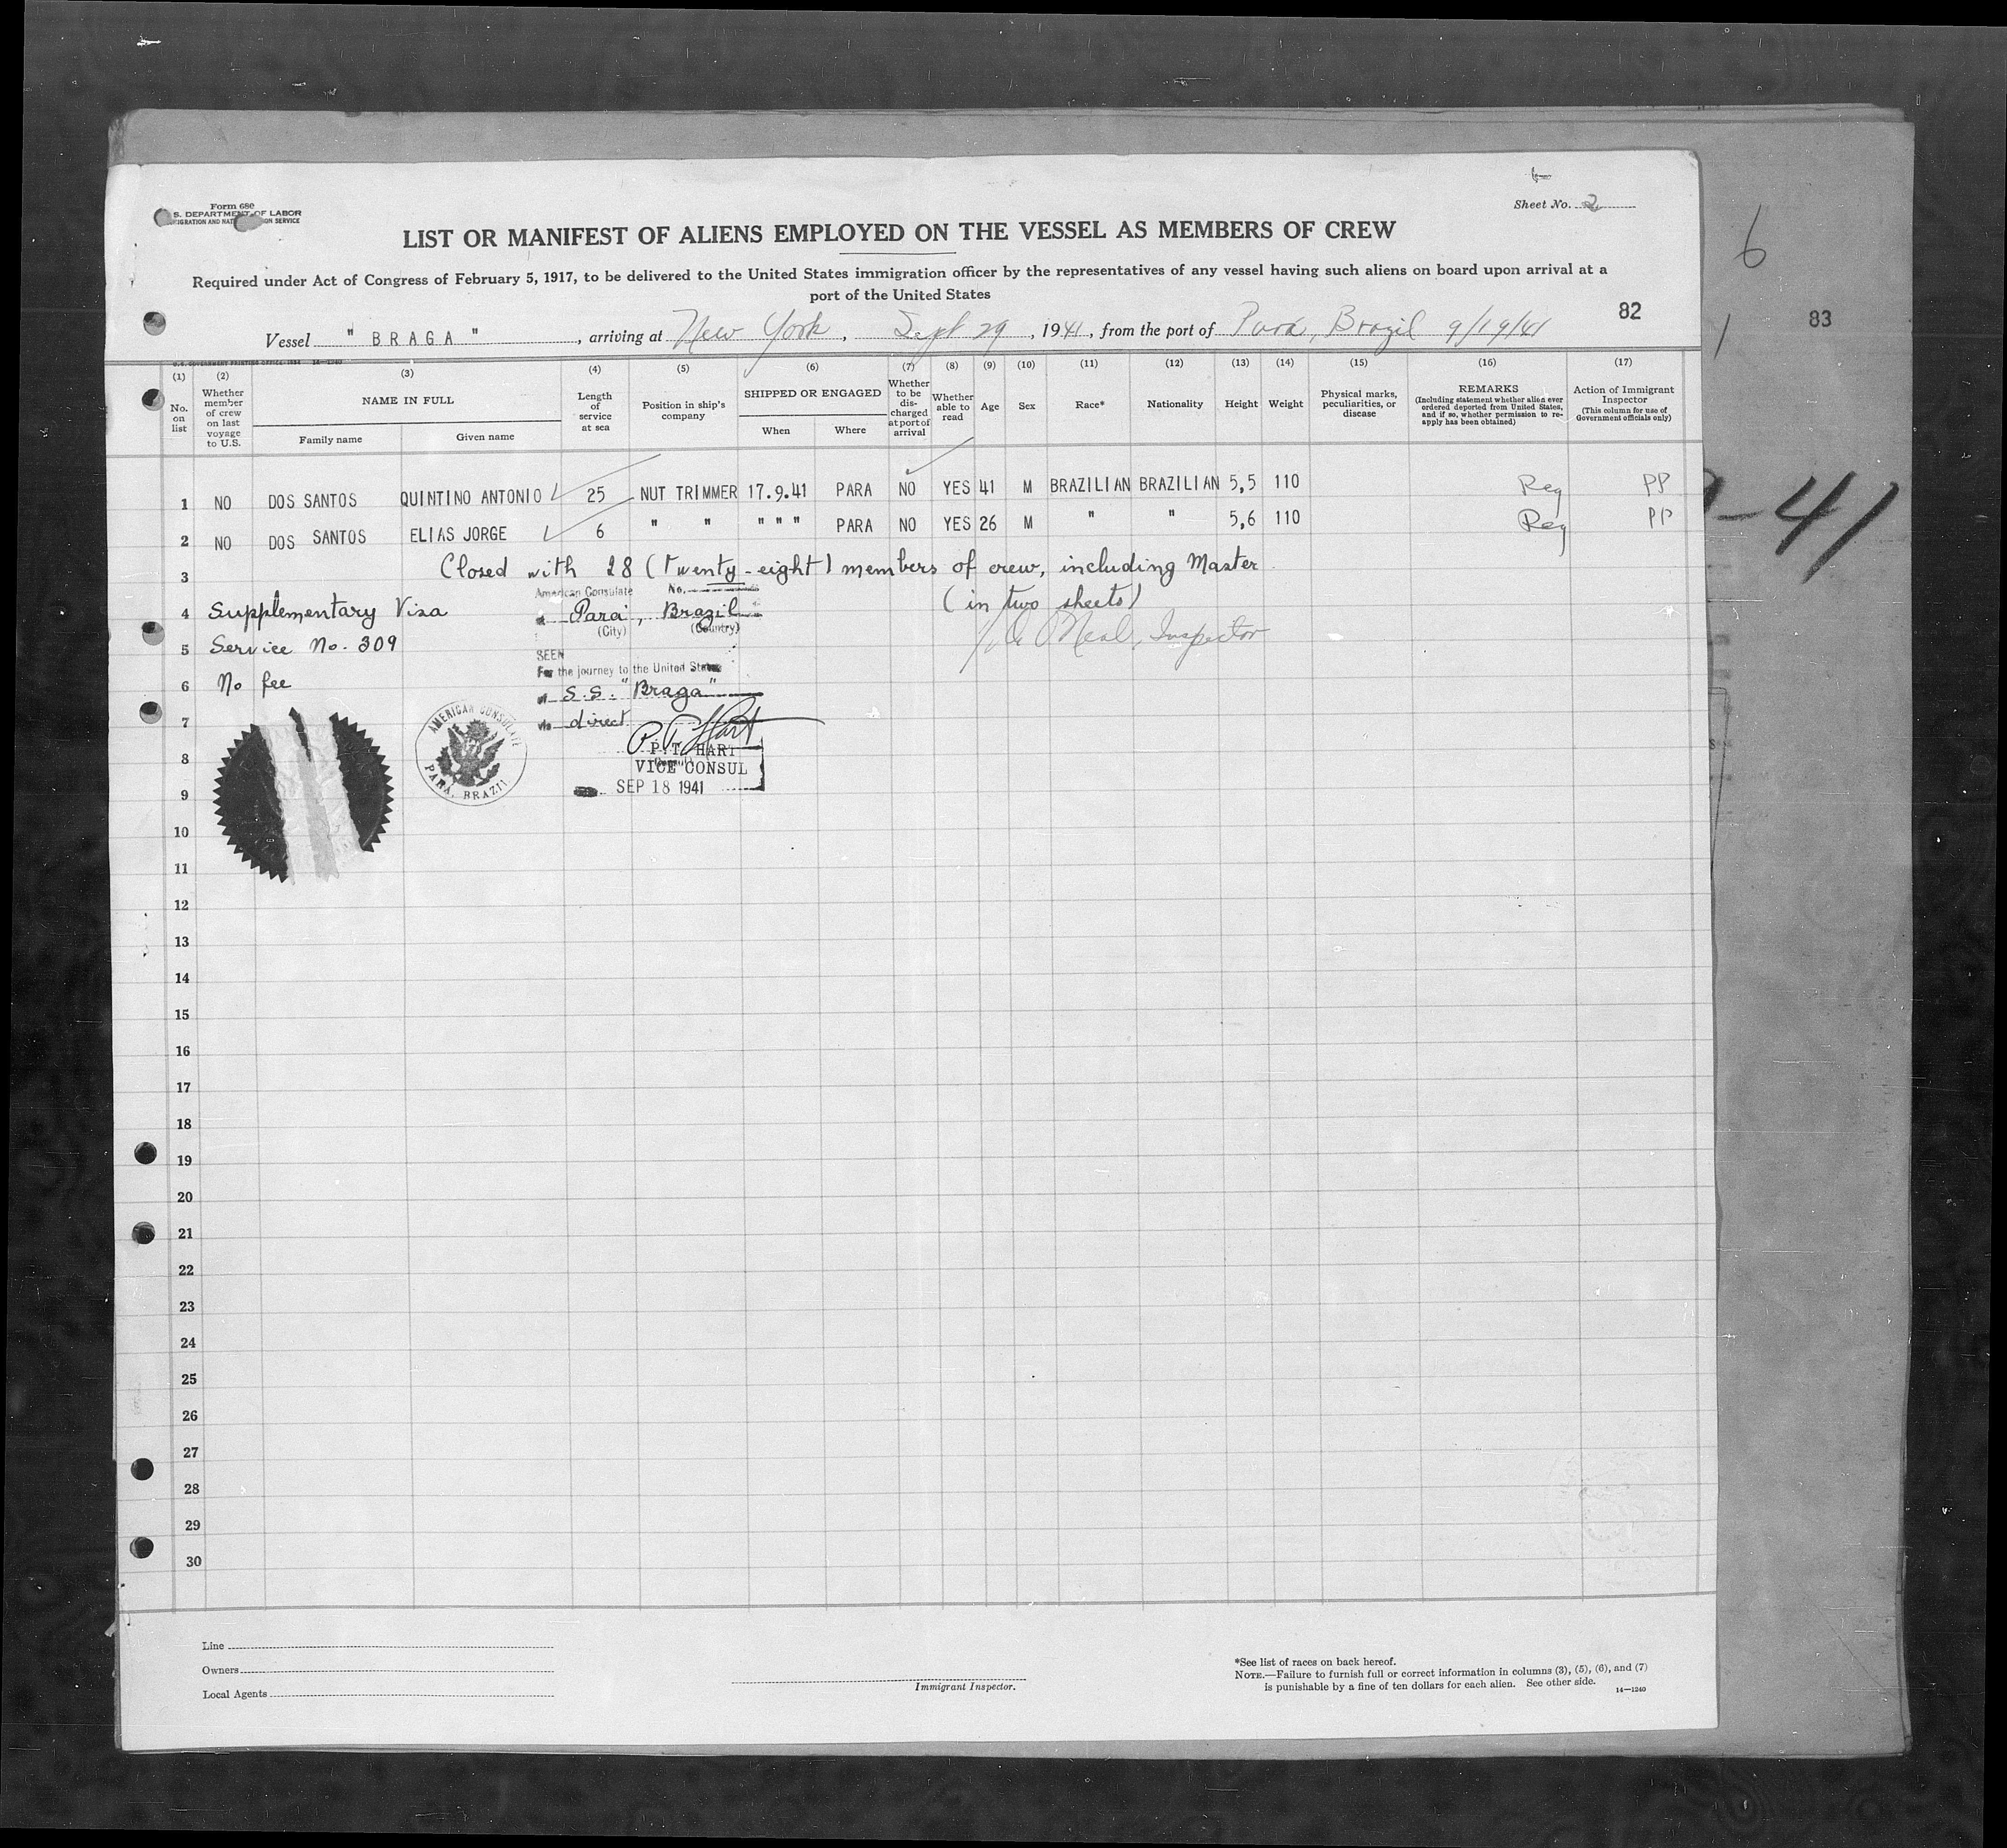 Form 680
S. DEPARTMENT OF LABOR
Sheet No. 2
LIST OR MANIFEST OF ALIENS EMPLOYED ON THE VESSEL AS MEMBERS OF CREW
Required under Act of Congress of February 5, 1917, to be delivered to the United States immigration officer by the representatives of any vessel having such aliens on board upon arrival at a
port of the United States
6
82
83
Vessel " BRAGA " , arriving at New York, Sept 29, 1941, from the port of Pará, Brazil 9/19/41
(1) (2) (3) (4) (5) (6) (7) (8) (9) (10) (11) (12) (13) (14) (15) (16) (17)
No. on list
Whether member of crew on last voyage to U.S.
NAME IN FULL
Family name
Given name
Length of service at sea
Position in ship's company
SHIPPED OR ENGAGED
When
Where
Whether to be discharged at port of arrival
Whether able to read
Age
Sex
Race*
Nationality
Height
Weight
Physical marks, peculiarities, or disease
REMARKS
(Including statement whether alien ever ordered deported from United States, and if so, whether permission to reapply has been obtained)
Action of Immigrant Inspector
(This column for use of Government officials only)
1 NO DOS SANTOS QUINTINO ANTONIO 25 NUT TRIMMER 17.9.41 PARA NO YES 41 M BRAZILIAN BRAZILIAN 5,5 110 Reg PP
2 NO DOS SANTOS ELIAS JORGE 6 " " " " " PARA NO YES 26 M " " 5,6 110 Reg PP
-41
3 Closed with 28 (twenty-eight) members of crew, including Master
(in two sheets)
American Consulate No.
4 Supplementary Visa
Pará, Brazil
(City) (Country)
5 Service No. 309
Inspector
SEEN
For the journey to the United States
6 No fee
S.S. "Braga"
via direct
7
AMERICAN CONSULATE
PARA, BRAZIL
P.T. HART
VICE CONSUL
SEP 18 1941
8
9
10
11
12
13
14
15
16
17
18
19
20
21
22
23
24
25
26
27
28
29
30
Line
Owners
Local Agents
Immigrant Inspector.
*See list of races on back hereof.
NOTE.—Failure to furnish full or correct information in columns (3), (5), (6), and (7)
is punishable by a fine of ten dollars for each alien. See other side.
14—1240